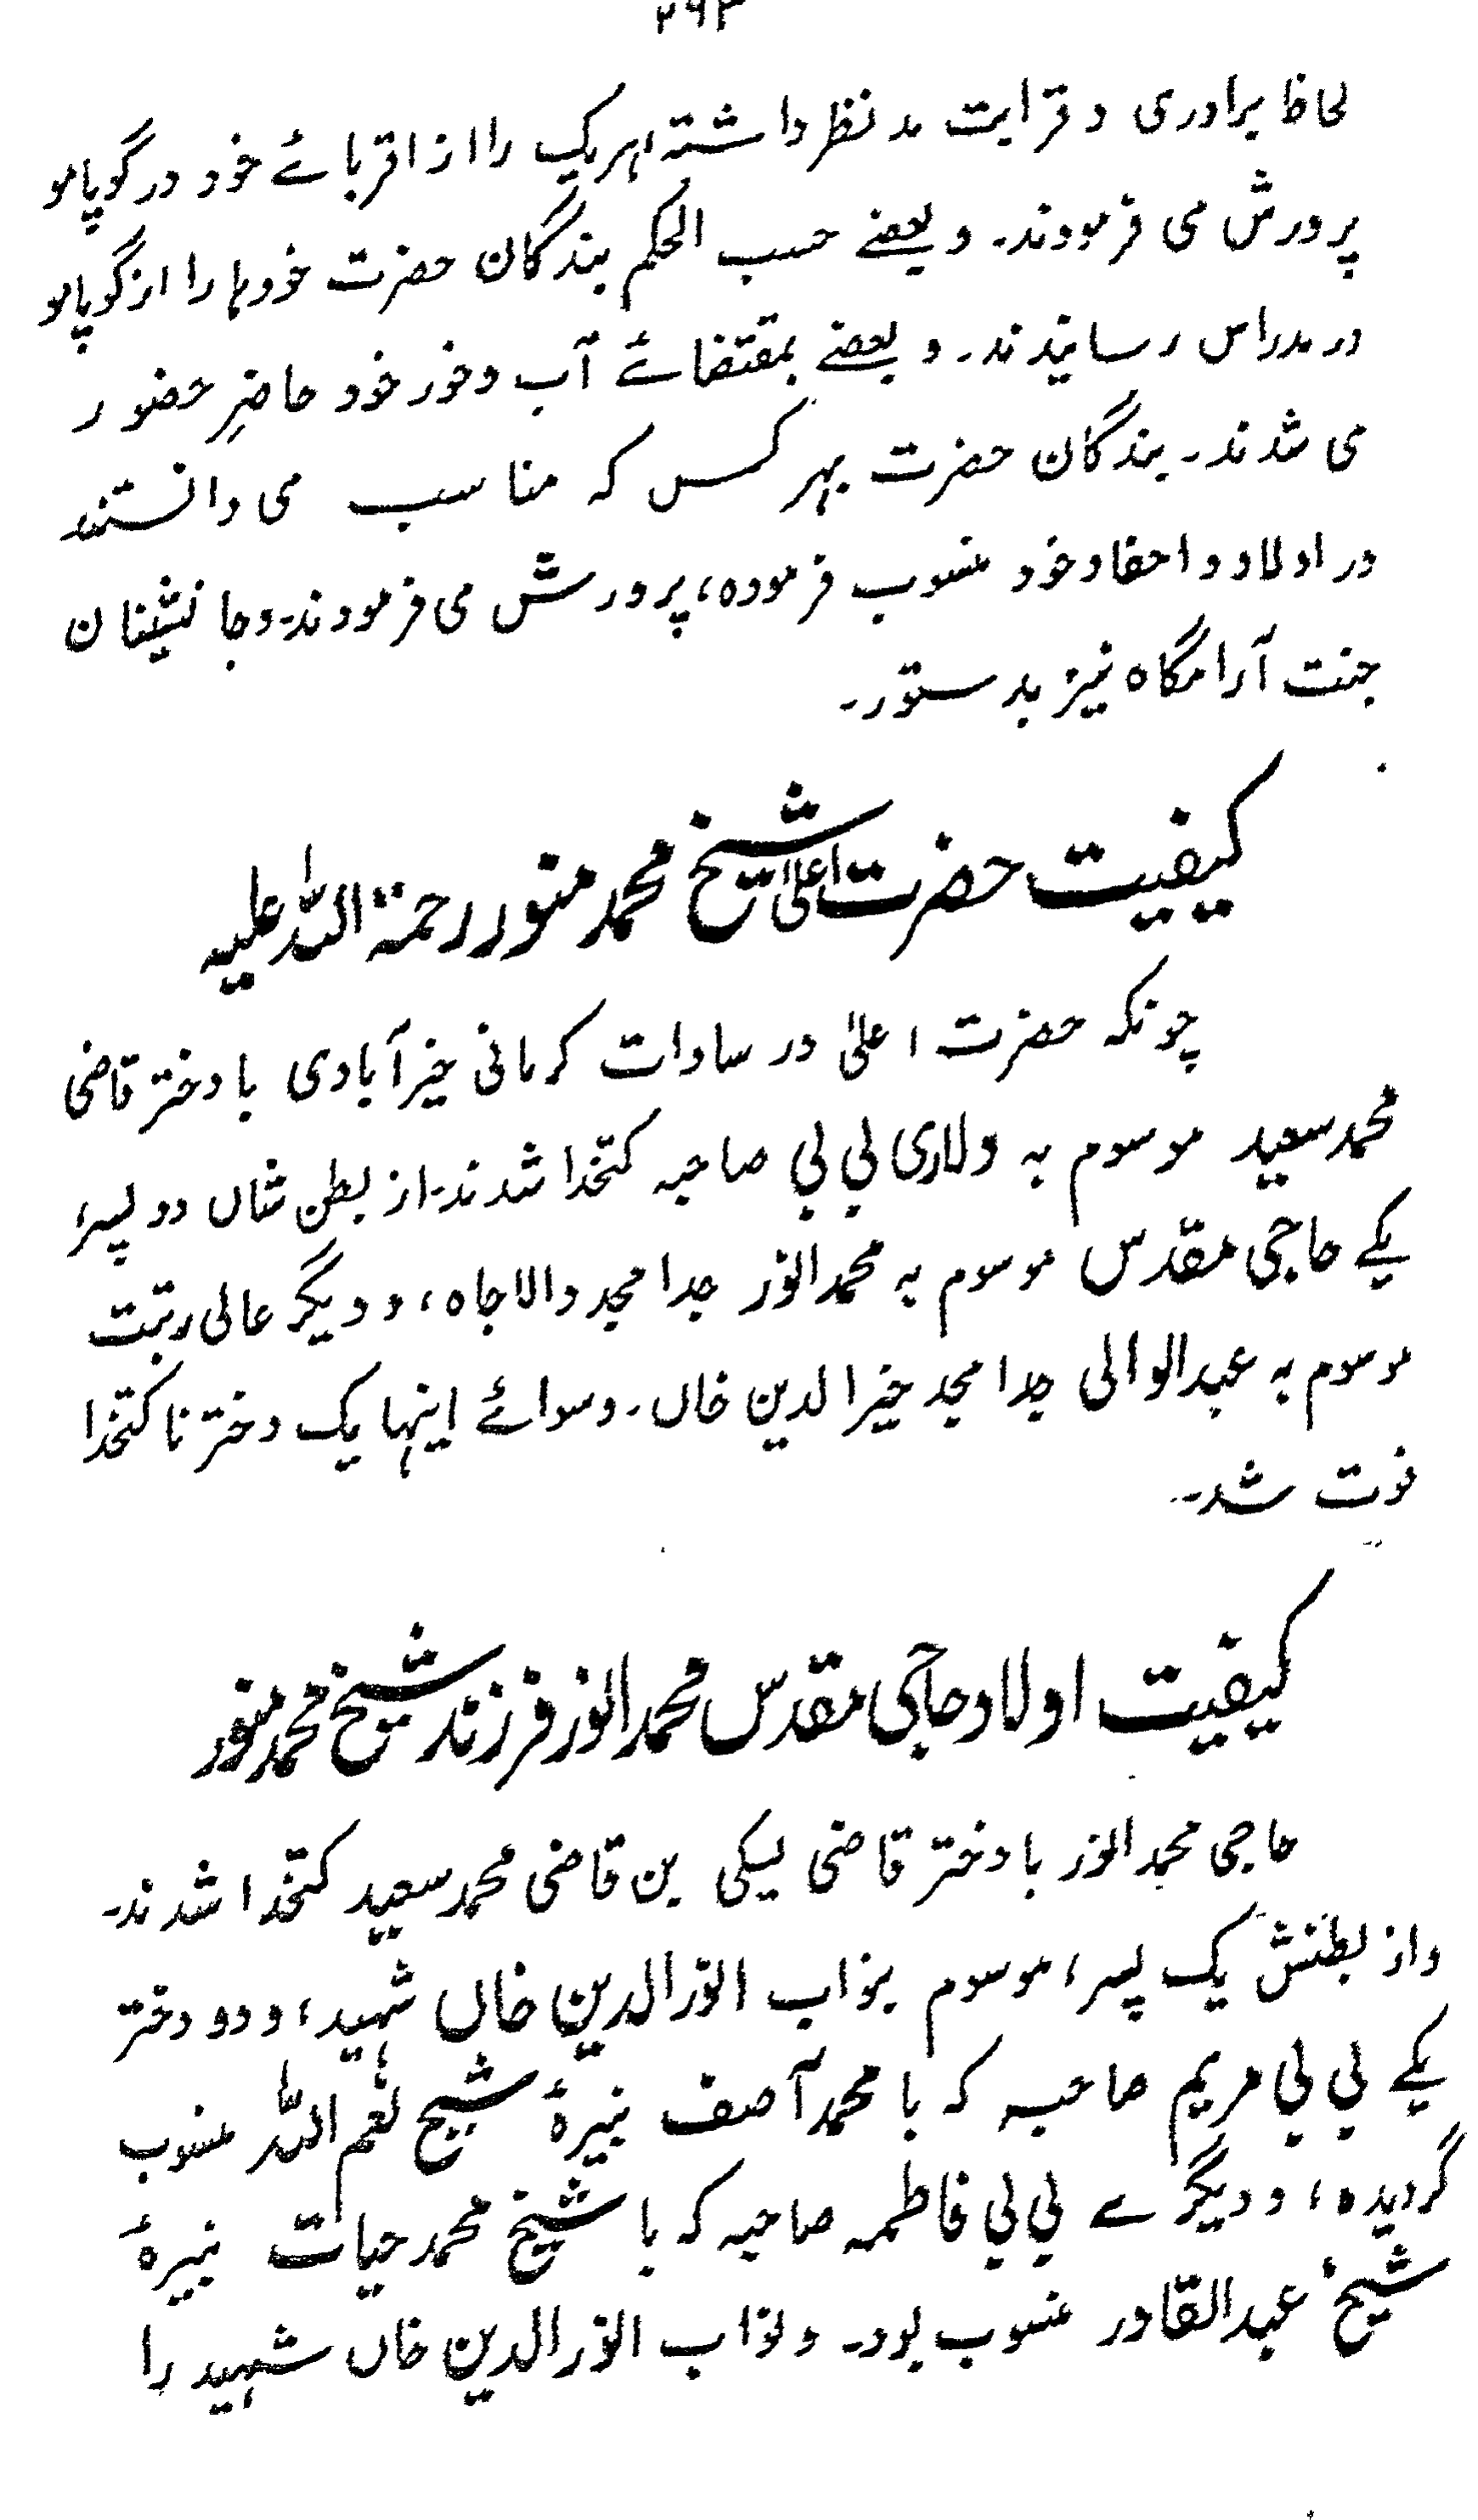 ۲۹۳
لحاظ برادری و قرابت مدنظر داشته ہریک را از اقربائے خود در گوپامو
پرورش می فرمودند۔ و بعضے حسب الحکم بندگان حضرت خودہا را از گوپامو
در مدراس رسانیدند۔ و بعضے بمقتضائے آب و خور خود حاضرِ حضور
می شدند۔ بندگان حضرت بہر کس کہ مناسب می دانستند
در اولاد و احفاد خود منسوب فرموده، پرورش می فرمودند۔ و جانشینان
جنت آرامگاه نیز بدستور۔
کیفیت حضرت اعلیٰ شیخ محمد منور رحمة اللہ علیہ
چونکہ حضرت اعلیٰ در سادات کرمانی خیرآبادی با دختر قاضی
محمد سعید موسوم بہ ولاری بی بی صاحبہ کتخدا شدند۔ از بطن شاں دو پسر،
یکے حاجی مقدس موسوم بہ محمد انور جد امجد والاجاه، و دیگر عالی رتبت
موسوم بہ عبدالوالی جد امجد خیرالدین خاں۔ و سوائے اینہا یک دختر ناکتخدا
فوت شد۔
کیفیت اولاد حاجی مقدس محمد انور فرزند شیخ محمد منور
حاجی محمد انور با دختر قاضی لیکی بن قاضی محمد سعید کتخدا شدند۔
و از بطنش یک پسر، موسوم بنواب انورالدین خاں شہید، و دو دختر
یکے بی بی مریم صاحبہ کہ با محمد آصف نبیرۂ شیخ نعم اللہ منسوب
گردیده، و دیگرے بی بی فاطمہ صاحبہ کہ با شیخ محمد حیات نبیرۂ
شیخ عبدالقادر منسوب بود۔ و نواب انورالدین خاں شہید را